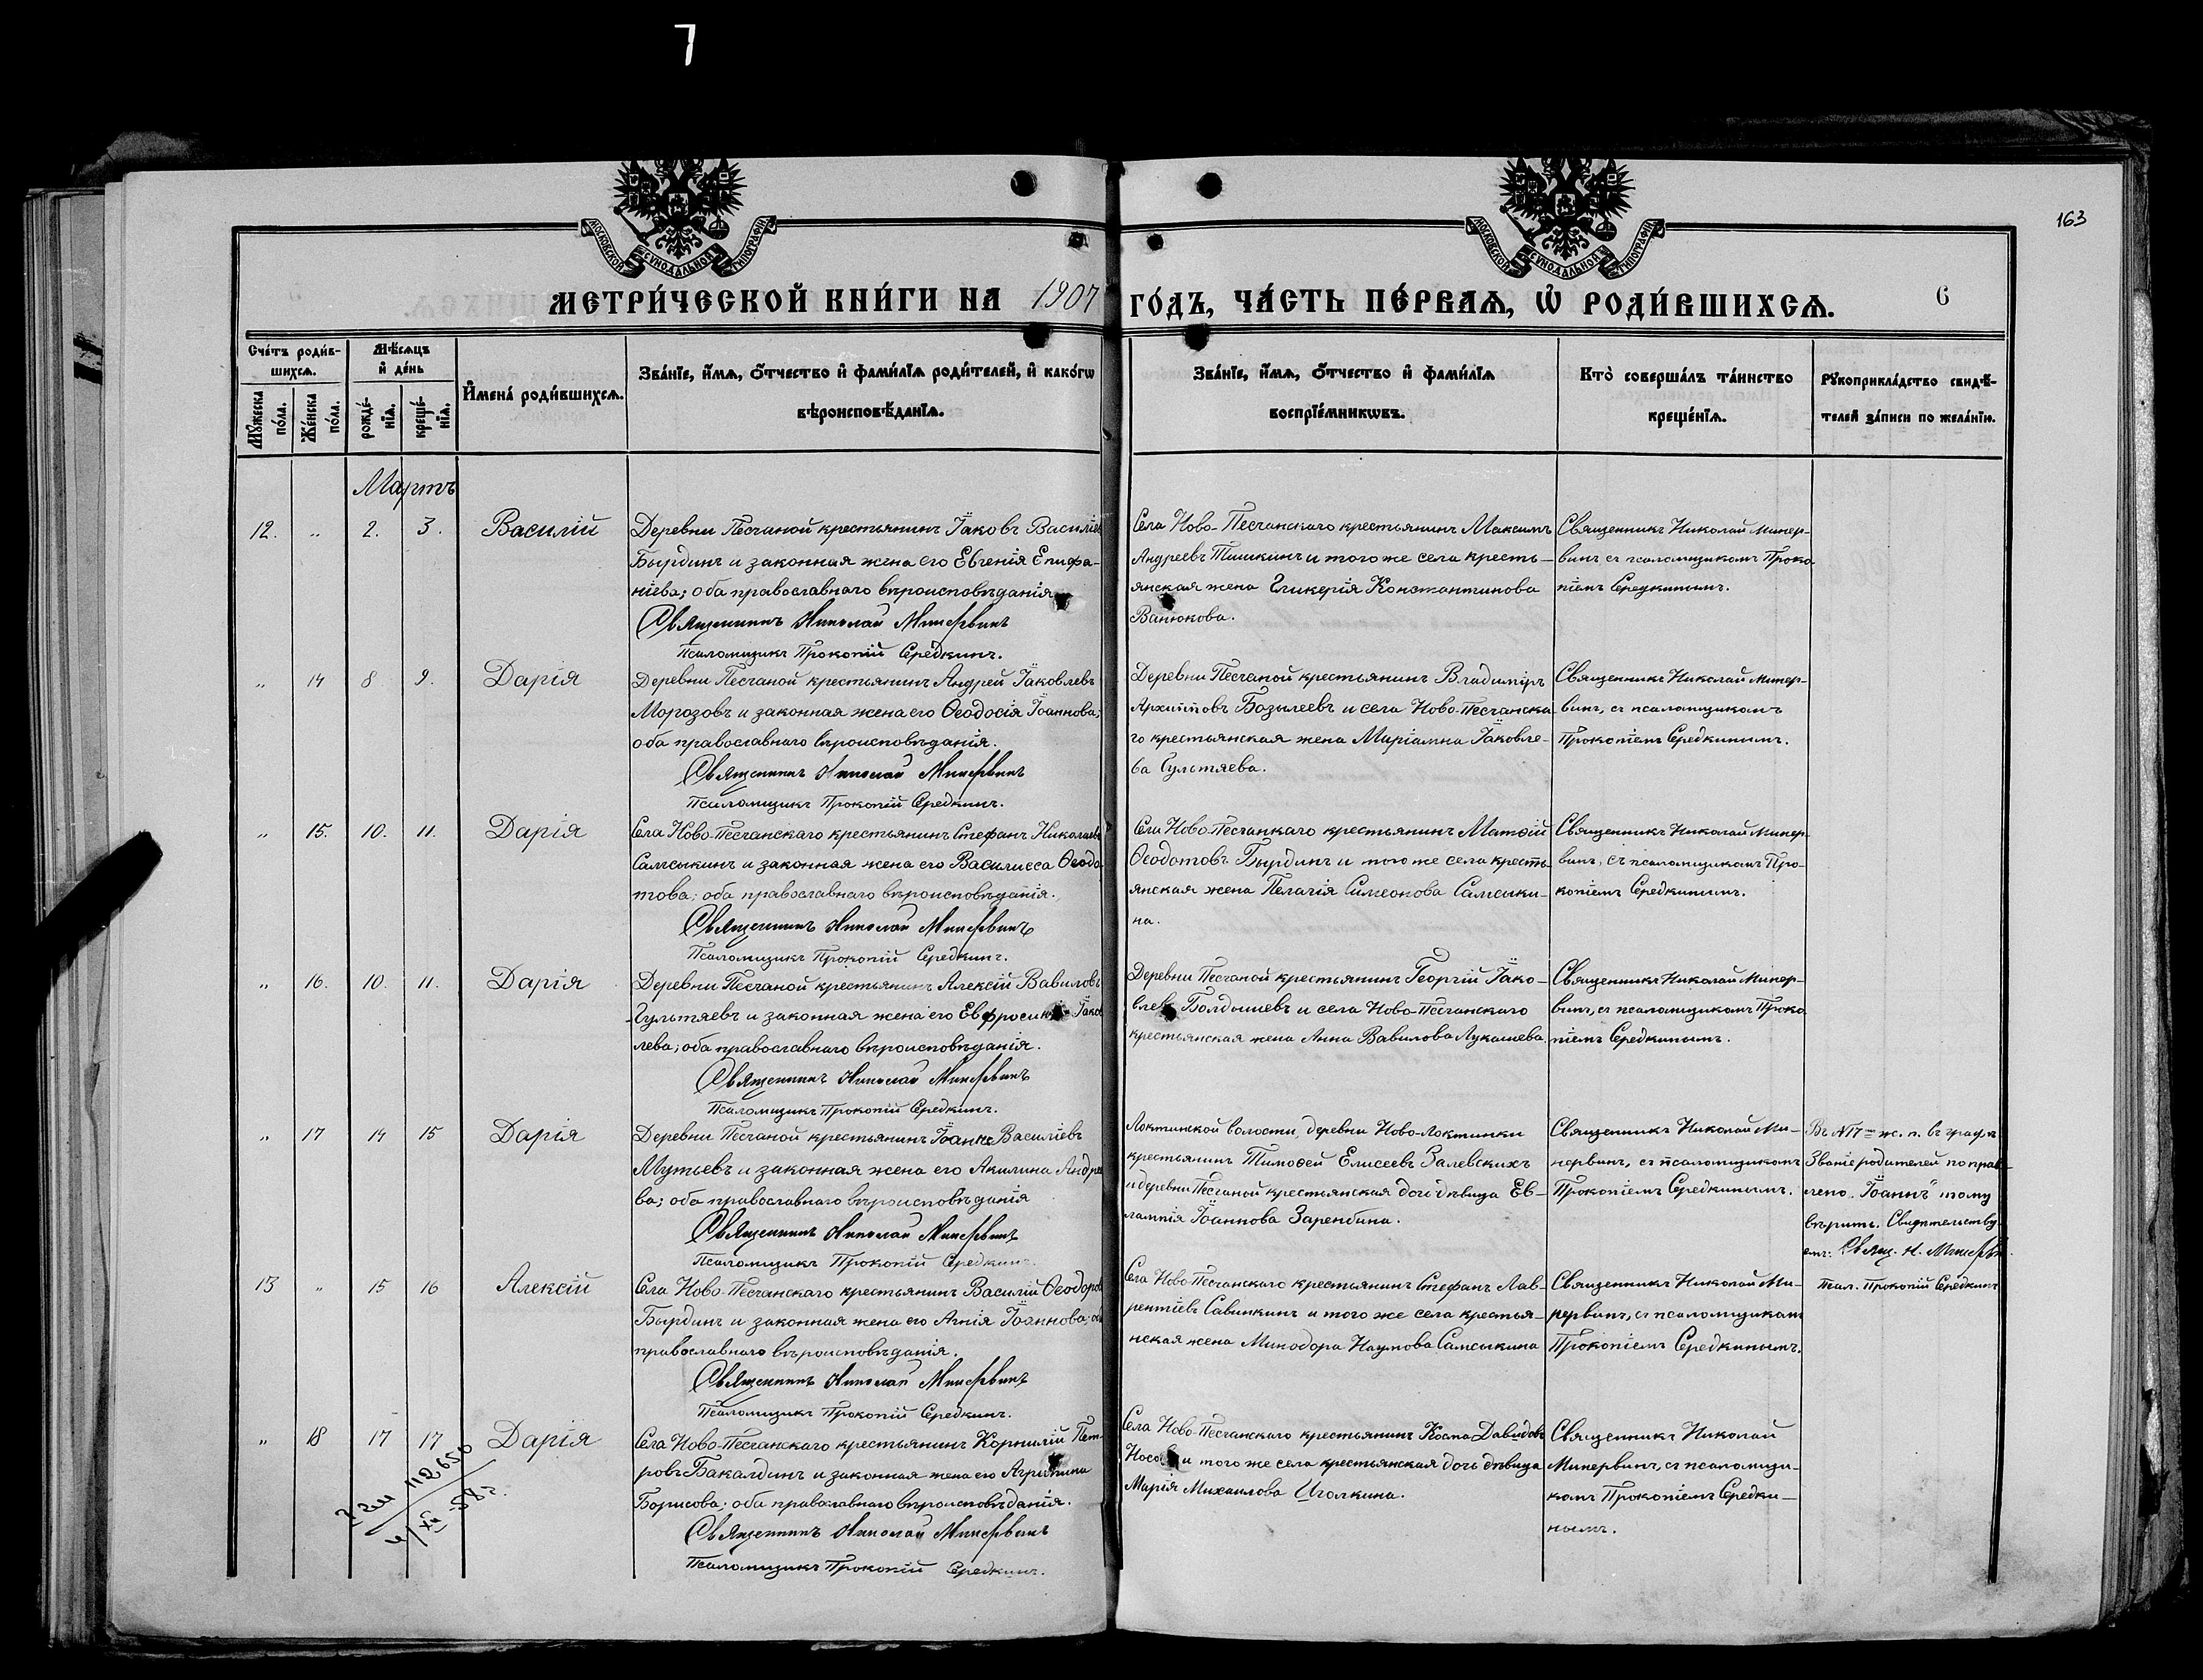 7
163
МОСКОВСКОЙ СѴНОДАЛЬНОЙ ТИПОГРАФІИ
МОСКОВСКОЙ СѴНОДАЛЬНОЙ ТИПОГРАФІИ
МЕТРИ́ЧЕСКОЙ КНИ́ГИ НА 1907 ГО́ДЪ, ЧА́СТЬ ПЕ́РВАѦ, Ѡ҆ РОДИ́ВШИХСѦ. 6
Сче́тъ роди́в-
шихсѧ.
Мꙋ́жеска по́ла.
Же́нска по́ла.
Мѣ́сѧцъ
и҆ де́нь
рожде́-
нїѧ.
креще́-
нїѧ.
И҆мена̀ роди́вшихсѧ.
Зва́нїе, и҆́мѧ, ѻ҆́тчество и҆ фами́лїѧ роди́телей, и҆ како́гѡ
вѣроисповѣ́данїѧ.
Зва́нїе, и҆́мѧ, ѻ҆́тчество и҆ фами́лїѧ
воспрїе́мникѡвъ.
Кто̀ соверша́лъ та́инство
креще́нїѧ.
Рꙋкоприкла́дство свидѣ́-
телей за́писи по жела́нїю.
Мартъ
12. „ 2. 3. Василій
Деревни Песчаной крестьянинъ Іаковъ Василіев
Бырдинъ и законная жена его Евгенія Епифа-
ніева; оба православнаго вѣроисповѣданія
Священникъ Николай Минервинъ
Псаломщикъ Прокопій Середкинъ.
Села Ново-Песчанскаго крестьянинъ Максимъ
Андреевъ Тишкинъ и того же села кресть-
янская жена Гликерія Константинова
Ванюкова.
Священникъ Николай Минер-
винъ съ псаломщикомъ Проко
піемъ Середкинымъ.
„ 14 8 9. Дарія
Деревни Песчаной крестьянинъ Андрей Іаковлевъ
Морозовъ и законная жена его Ѳеодосія Іоаннова;
оба православнаго вѣроисповѣданія.
Священникъ Николай Минервинъ
Псаломщикъ Прокопій Середкинъ.
Деревни Песчаной крестьянинъ Владиміръ
Архипповъ Бозылеевъ и села Ново-Песчанска
го крестьянская жена Маріамна Іаковле-
ва Гультяева.
Священникъ Николай Минер-
винъ, съ псаломщикомъ
Прокопіемъ Середкинымъ.
„ 15. 10. 11. Дарія
Села Ново-Песчанскаго крестьянинъ Стефанъ Николаевъ
Самсыкинъ и законная жена его Василисса Ѳеодо
това; оба православнаго вѣроисповѣданія.
Священникъ Николай Минервинъ
Псаломщикъ Прокопій Середкинъ.
Села Ново-Песчанкаго крестьянинъ Матѳій
Ѳеодотовъ Бырдинъ и того же села кресть-
янская жена Пелагія Симеонова Самсыки-
на.
Священникъ Николай Минер-
винъ, съ псаломщикомъ Про-
копіемъ Середкинымъ.
„ 16. 10. 11. Дарія
Деревни Песчаной крестьянинъ Алексій Вавиловъ
Гультяевъ и законная жена его Евфросинія Іаков
лева; оба православнаго вѣроисповѣданія.
Священникъ Николай Минервинъ
Псаломщикъ Прокопій Середкинъ.
Деревни Песчаной крестьянинъ Георгій Іако-
влевъ Болдышевъ и села Ново-Песчанскаго
крестьянская жена Анна Вавилова Лукашева
Священникъ Николай Минер-
винъ, съ псаломщикомъ Проко
піемъ Середкинымъ.
„ 17 14 15 Дарія
Деревни Песчаной крестьянинъ Іоаннъ Василіевъ
Мутьевъ и законная жена его Акилина Андрее
ва; оба православнаго вѣроисповѣданія
Священникъ Николай Минервинъ
Псаломщикъ Прокопій Середкинъ.
Локтинской волости, деревни Ново-Локтинки
крестьянинъ Тимоѳей Елисеевъ Залевскихъ
и деревни Песчаной крестьянская дочь дѣвица Ев-
лампія Іоаннова Зарембина.
Священникъ Николай Ми-
нервинъ, съ псаломщикомъ
Прокопіемъ Середкинымъ.
Въ №17 ж. п. въ графѣ
Званіе родителей поправ-
лено „Іоаннъ" тому
вѣрить. Свидѣтельству-
емъ: Свящ. Н. Минервин
Псал. Прокопій Середкинъ
13 „ 15 16 Алексій
Села Ново-Песчанскаго крестьянинъ Василій Ѳеодоров
Бырдинъ и законная жена его Агнія Іоаннова; оба
православнаго вѣроисповѣданія.
Священникъ Николай Минервинъ
Псаломщикъ Прокопій Середкинъ.
Села Ново-Песчанскаго крестьянинъ Стефанъ Лав-
рентіевъ Савинкинъ и того же села крестья-
нская жена Минодора Наумова Самсыкина
Священникъ Николай Ми-
нервинъ, съ псаломщикомъ
Прокопіемъ Середкинымъ.
„ 18 17 17 Дарія
Села Ново-Песчанскаго крестьянинъ Корнилій Пет-
ровъ Бакалдинъ и законная жена его Агриппина
Борисова; оба православнаго вѣроисповѣданія.
Священникъ Николай Минервинъ
Псаломщикъ Прокопій Середкинъ.
Села Ново-Песчанскаго крестьянинъ Косма Давидовъ
Носовъ и того же села крестьянская дочь дѣвица
Марія Михаилова Иголкина.
Священникъ Николай
Минервинъ, съ псаломщи-
комъ Прокопіемъ Середки-
нымъ.